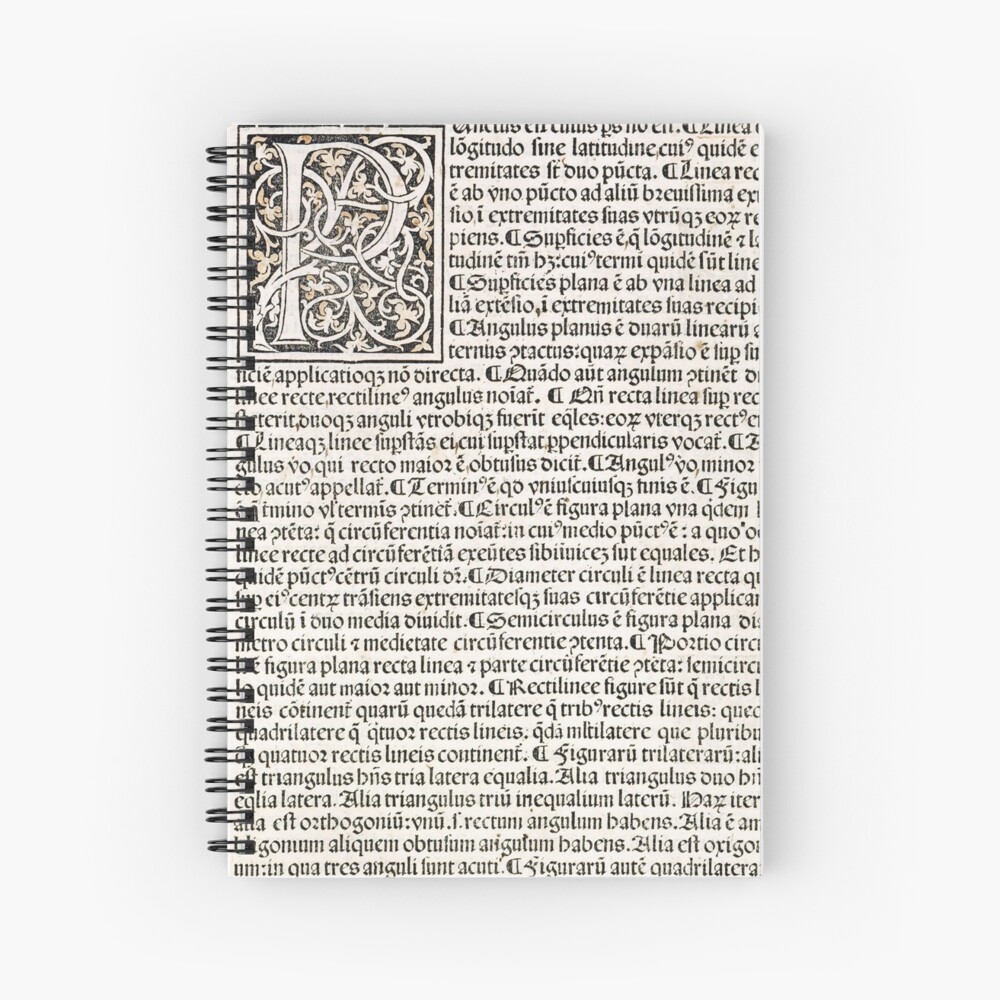 P
unctus est cuius ps nō est. ¶ Linea
lōgitudo sine latitudine, cuiꝰ quidē e
tremitates st̄ duo pūcta. ¶ Linea rec
ē ab vno pūcto ad aliū breuissima ex
sio, ī extremitates suas vtrūqꝫ eoꝝ re
piens. ¶ Supficies ē, q̄ lōgitudinē ⁊ la
tudinē tm̄ hꝫ: cuiꝰ termi quidē sūt line
¶ Supficies plana ē ab vna linea ad
liā extēsio, ī extremitates suas recipi
¶ Angulus planus ē duarū linearū a
ternus ꝯtactus: quaꝝ expāsio ē sup su
ficiē, applicatioqꝫ nō directa. ¶ Quādo aūt angulum ꝯtinēt d
linee recte, rectilineꝰ angulus noīat̄. ¶ Qn̄ recta linea sup rec
steterit, duoqꝫ anguli vtrobiqꝫ fuerīt eq̄les: eoꝝ vterqꝫ rectꝰ e
¶ Lineaqꝫ linee supstās ei, cui supstat, ppendicularis vocat̄. ¶ A
gulus ṽo, qui recto maior ē, obtusus dicit̄. ¶ Angulꝰ ṽo, minor
cto, acutꝰ appellat̄. ¶ Terminꝰ ē, qd̄ vniuscuiusqꝫ finis ē. ¶ Figu
q̄ t̄mino vl̓ termīs ꝯtinet̄. ¶ Circulꝰ ē figura plana vna q̄dem l
nea ꝯtēta: q̄ circūferentia noīat̄: in cuiꝰ medio pūctꝰ ē: a quo o
linee recte ad circūferētiā exeūtes sibiīuicez sūt equales. Et h
quidē pūctꝰ cētrū circuli dr̄. ¶ Diameter circuli ē linea recta qu
sup eiꝰ centꝝ trāsiens extremitatesqꝫ suas circūferētie applicat
circulū ī duo media diuidit. ¶ Semicirculus ē figura plana dia
metro circuli ⁊ medietate circūferentie ꝯtenta. ¶ Portio circ
li ē figura plana recta linea ⁊ parte circūferētie ꝯtēta: semicirc
lo quidē aut maior aut minor. ¶ Rectilinee figure sūt q̄ rectis l
neis cōtinent̄ quarū quedā trilatere q̄ tribꝰ rectis lineis: qued
quadrilatere q̄ q̄tuor rectis lineis. q̄dā ml̓tilatere que pluribꝰ
qꝫ quatuor rectis lineis continent̄. ¶ Figurarū trilaterarū: ali
est triangulus hn̄s tria latera equalia. Alia triangulus duo hn̄
eq̄lia latera. Alia triangulus triū inequalium laterū. Haꝝ iter
alia est orthogoniū: vnū .s. rectum angulum habens. Alia ē am
bligonium aliquem obtusum angulum habens. Alia est oxigo
um: in qua tres anguli sunt acuti. ¶ Figurarū autē quadrilatera